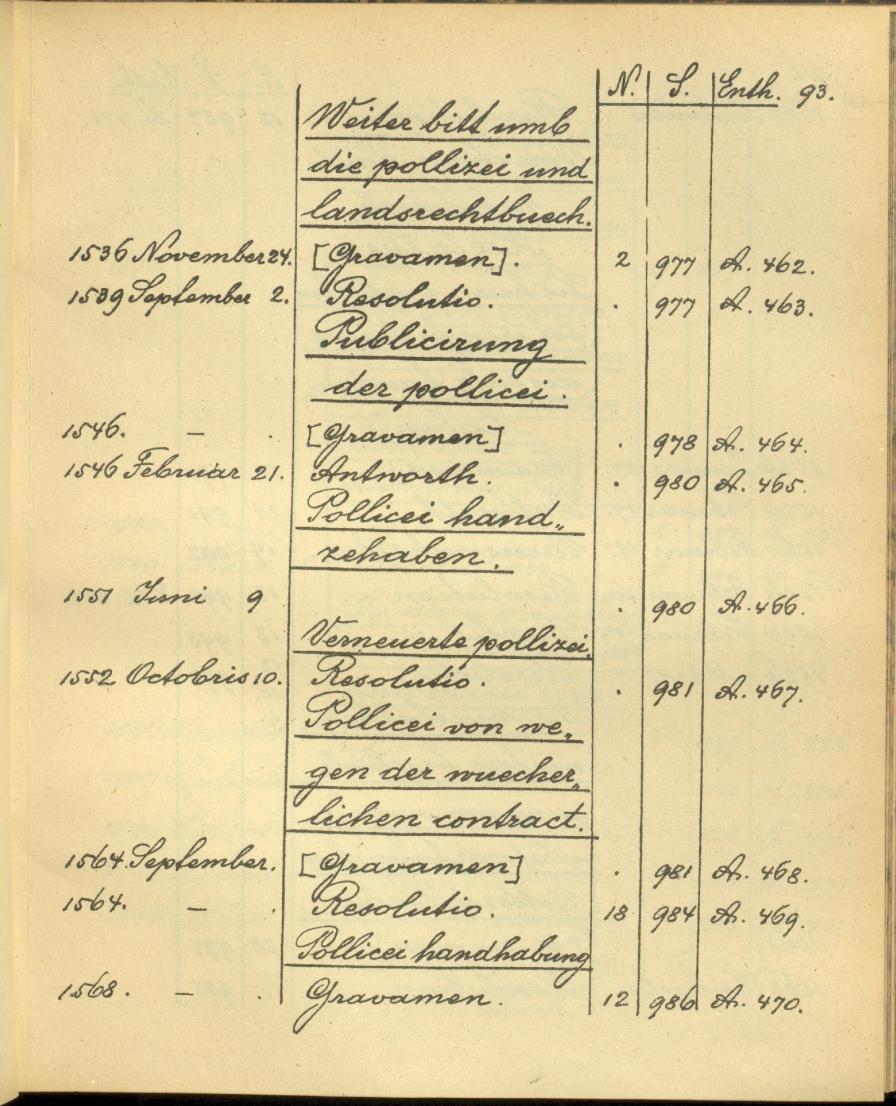 N. S. Enth. 93.
Weiter bitt umb
die pollizei und
landsrechtbuech.
1536 November 24. [Gravamen]. 2 977 A. 462.
1539 September 2. Resolutio. . 977 A. 463.
Publicirung
der pollicei.
1546. — . [Gravamen] . 978 A. 464.
1546 Februar 21. Antworth. . 980 A. 465.
Pollicei hand„
zehaben.
1551 Juni 9 . 980 A. 466.
Verneuerte pollizei.
1552 Octobris 10. Resolutio. . 981 A. 467.
Pollicei von we„
gen der wuecher„
lichen contract.
1564. September. [Gravamen] . 981 A. 468.
1564. — . Resolutio. 18 984 A. 469.
Pollicei handhabung
1568. — . Gravamen. 12 986 A. 470.